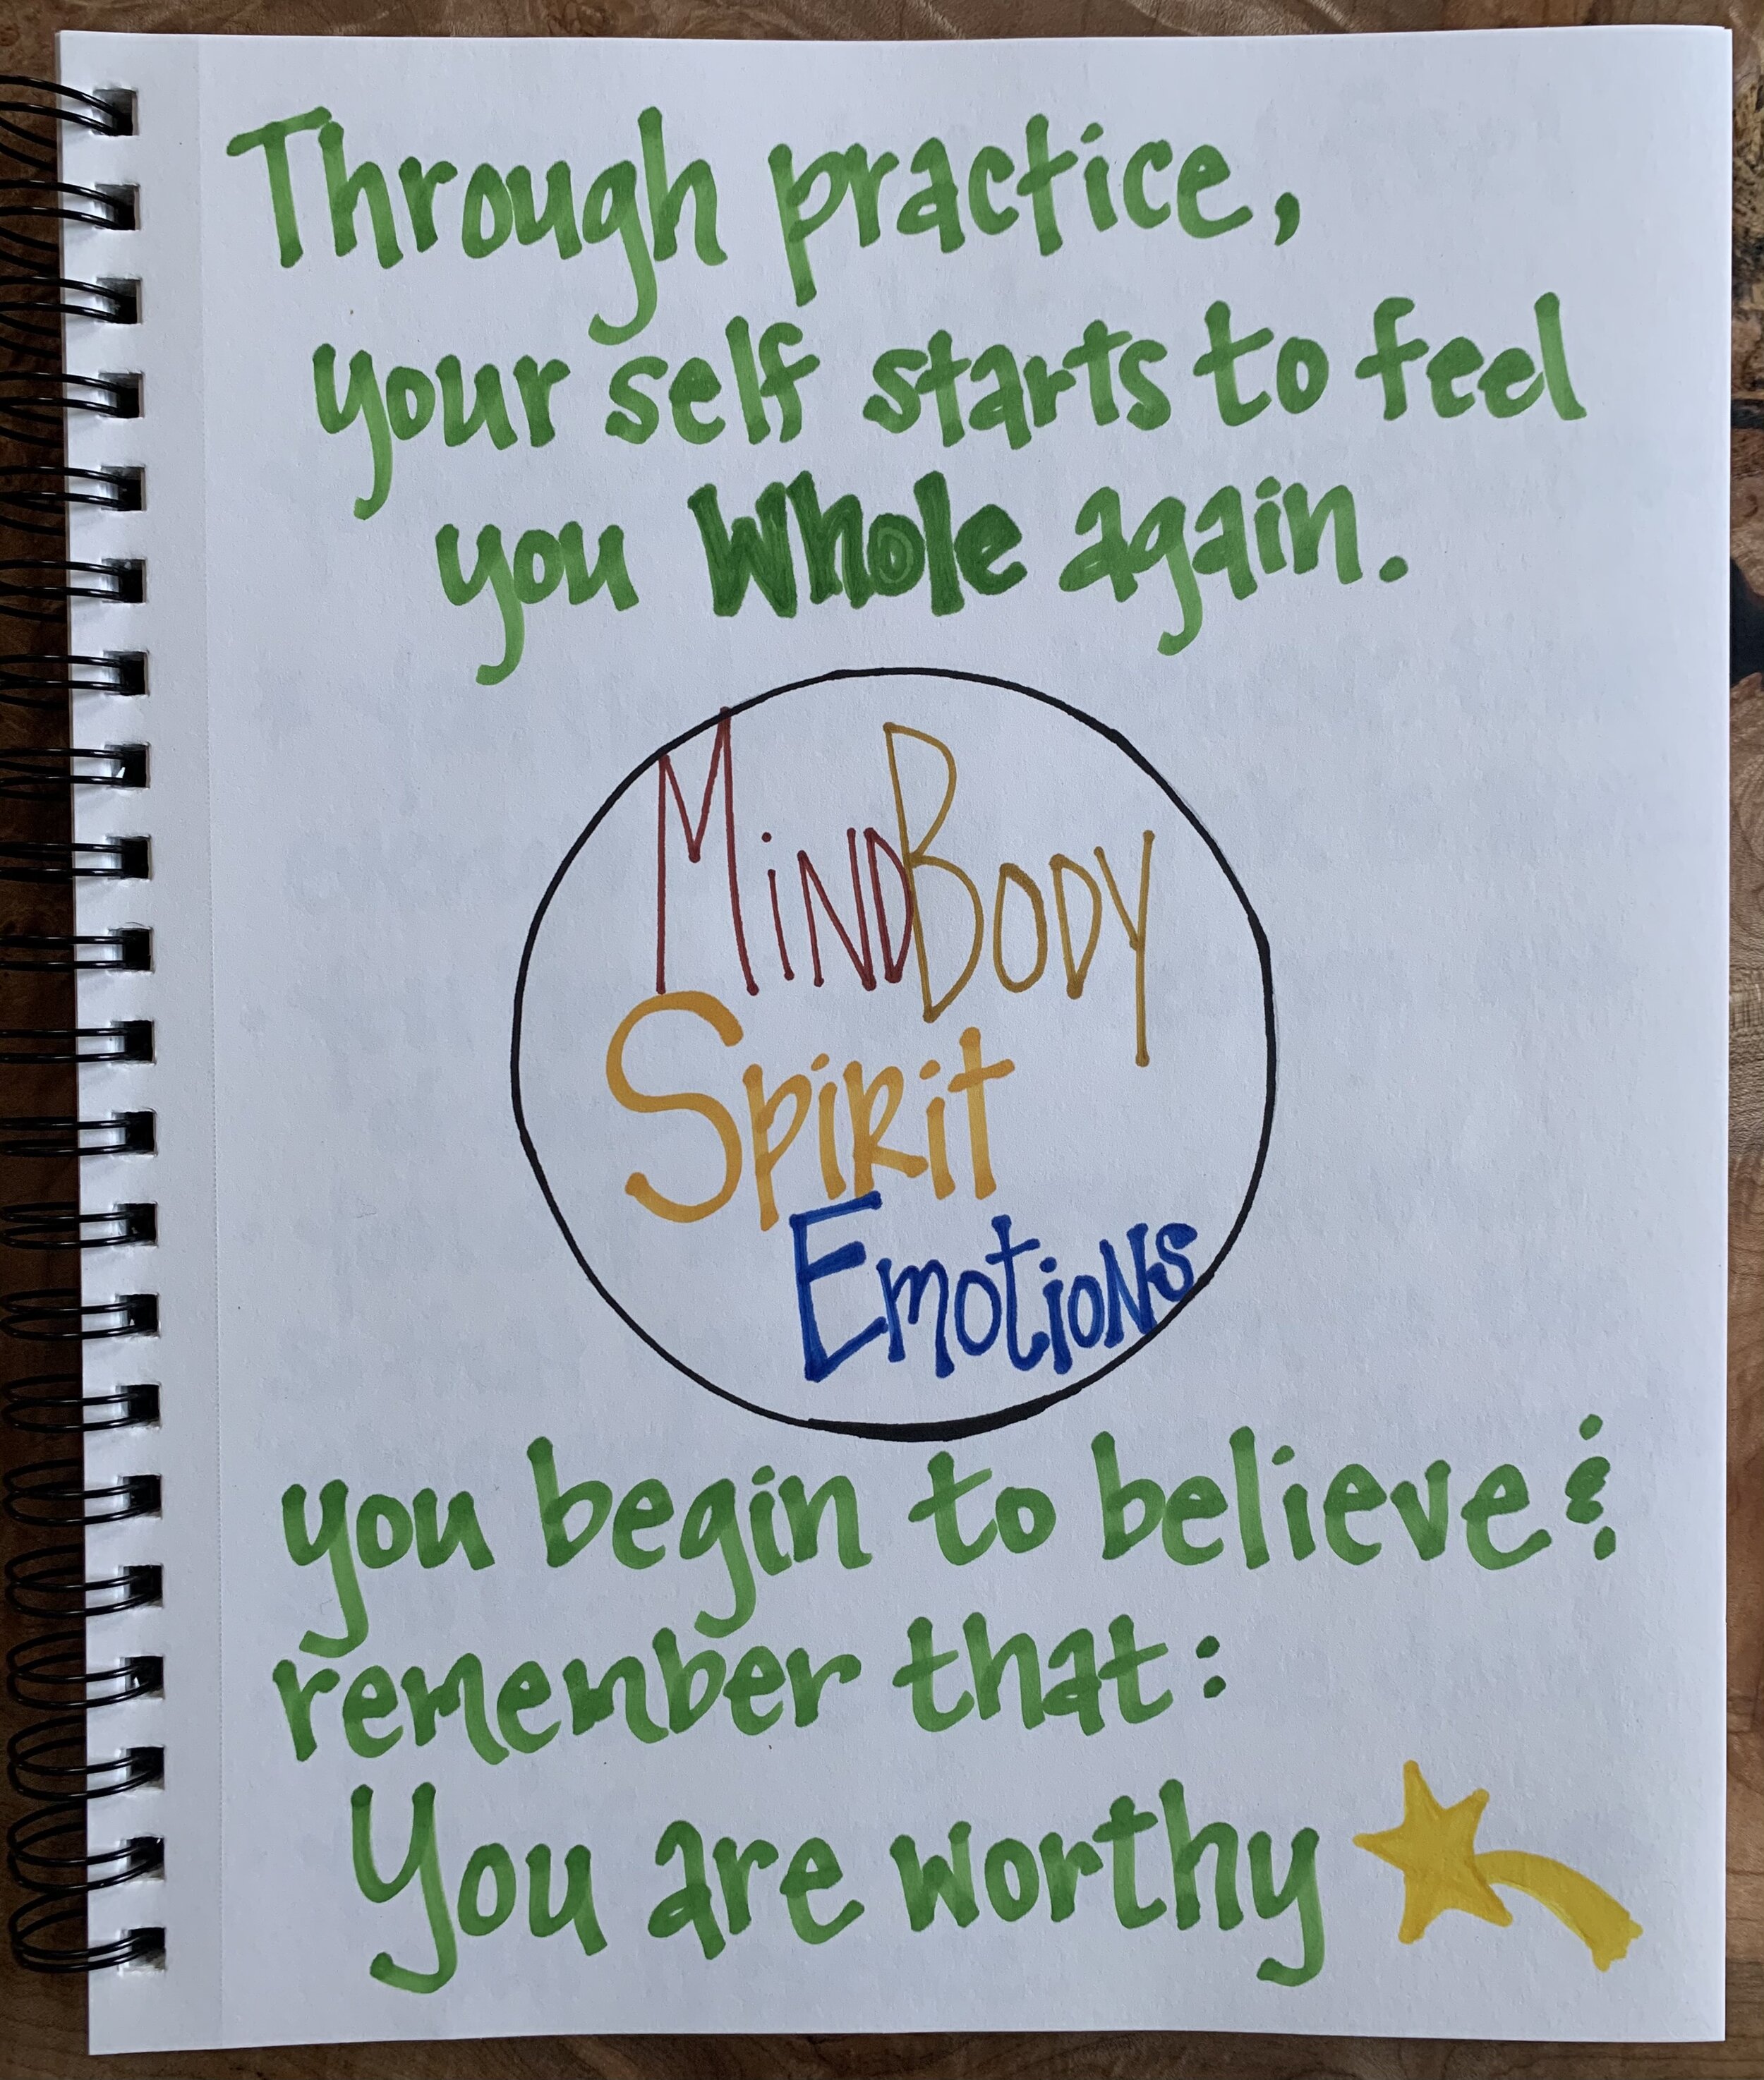 Through practice,
your self starts to feel
you whole again.
MiNDBODY
SpiRit
EmotioNs
you begin to believe &
remember that:
You are worthy